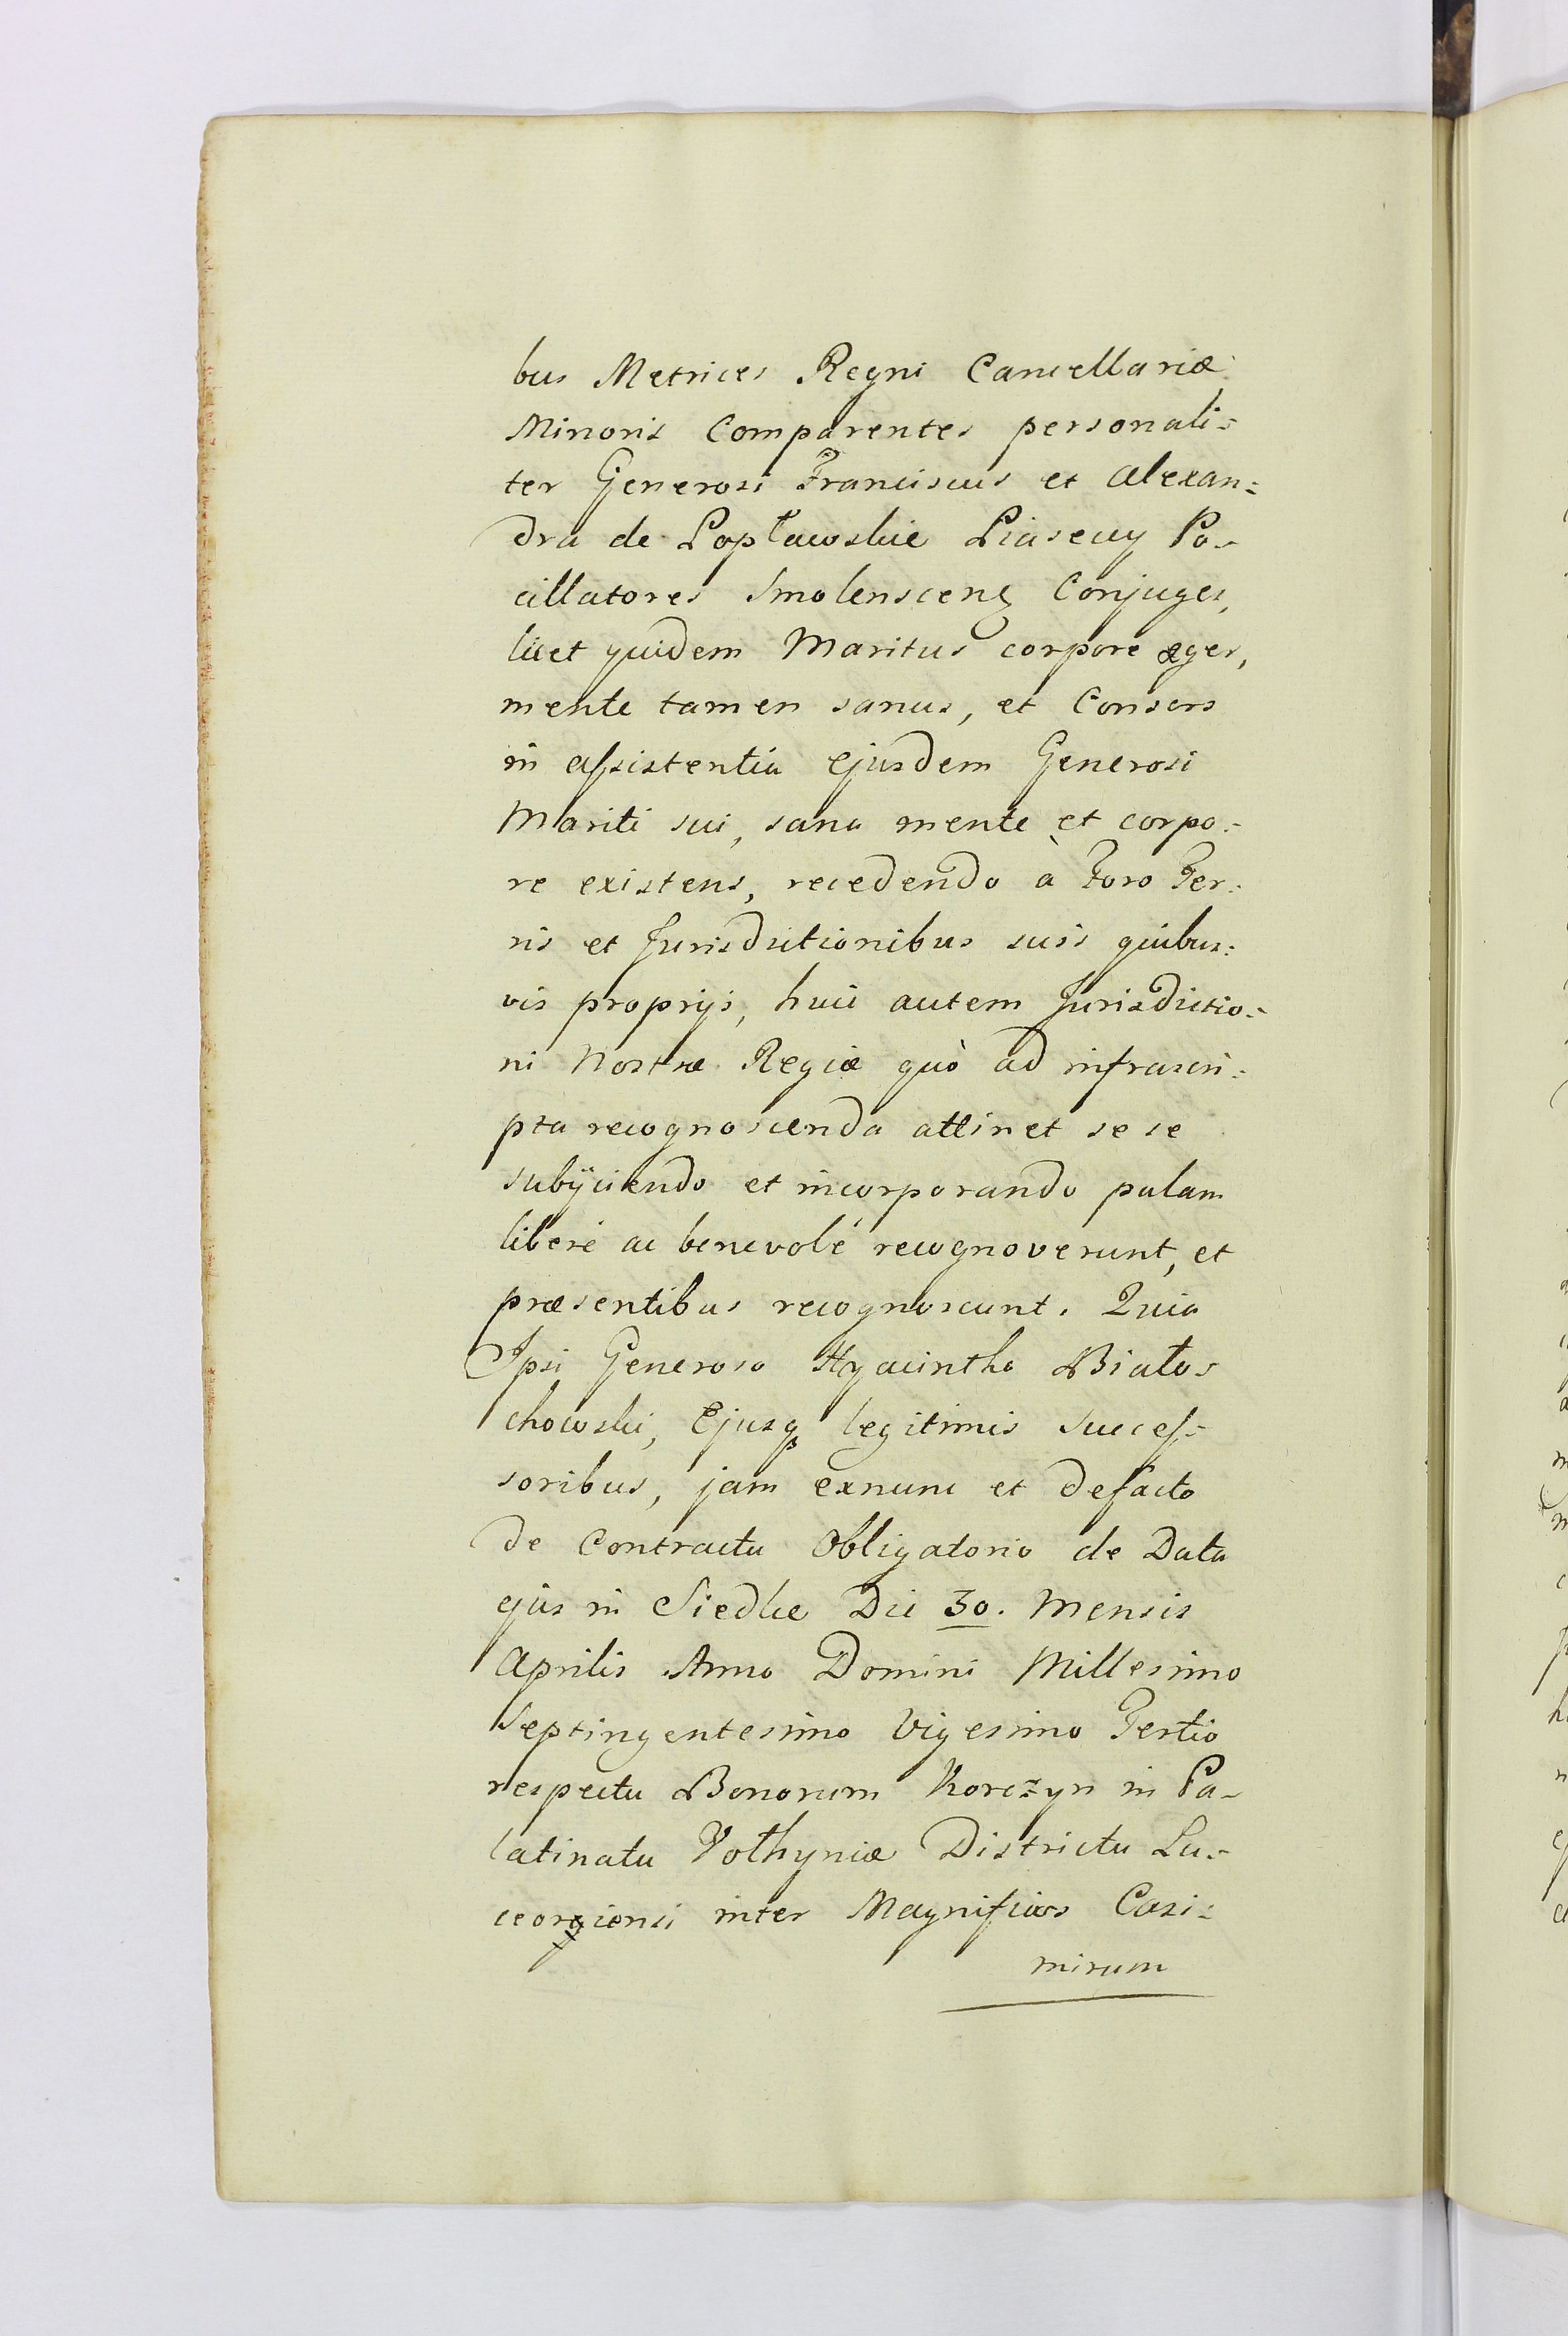 bus Metrices Regni Cancellariæ
Minoris Comparentes personali=
ter Generosi Franciscus et Alexan=
dra de Popławskie Piaseccy Po=
cillatores Smolenscens Conjuges,
licet quidem Maritus corpore æger,
mente tamen sanus, et Consors
in assistentia ejusdem Generosi
Mariti sui, sana mente et corpo=
re existens, recedendo à Foro Ter=
ris et Jurisdictionibus suis quibus=
vis proprijs, huic autem Jurisdictio=
ni Nostræ Regiæ quò ad infrascri=
pta recognoscenda attinet se se
subÿciendo et incorporando palam
liberè ac benevolè recognoverunt, et
præsentibus recognoscunt. Quia
Ipsi Generoso Hyacintho Białos
chowski, Ejusq legitimis succes=
soribus, jam exnunc et defacto
de Contractu Obligatorio de Data
ejus in Siedlce Die 30. Mensis
Aprilis Anno Domini Millesimo
Septingentesimo Vigesimo Tertio
respectu Bonorum Korczyn in Pa=
latinatu Vołhyniæ Districtu Lu=
ceoriensi inter Magnificos Casi=
mirum